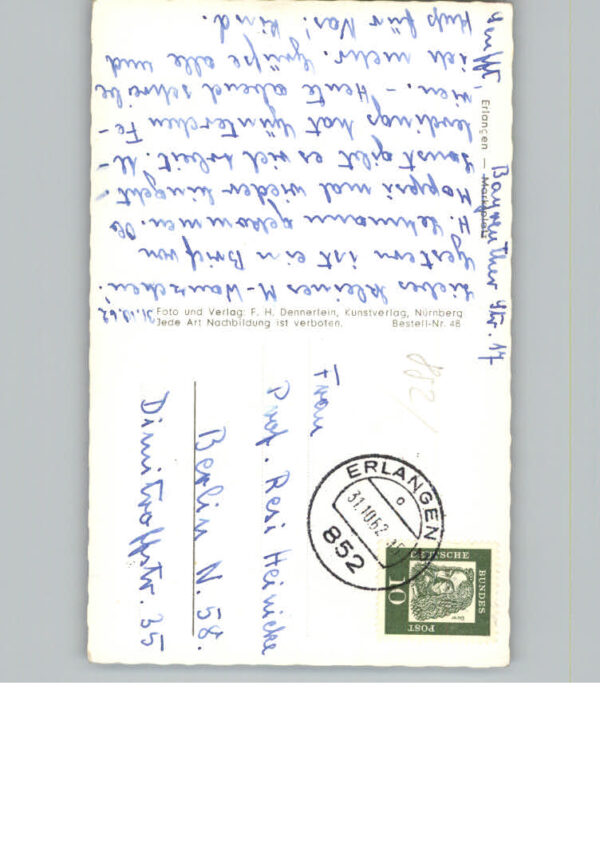 31.10.62
Liebes kleines M-Wanzchen!
Gestern ist ein Brief von
H. Lehmann gekommen. Ob
Hoppsi mal wieder hingeht.
Sonst gibt es viel Arbeit. Al-
lerdings hat Günterchen Fe-
rien. – Heute abend schreibe
ich mehr. Grüße alle und
Kuß für Vas! Kind.
Bayreuther Str. 17
Erlangen — Marktplatz
Foto und Verlag: F. H. Dennerlein, Kunstverlag, Nürnberg
Jede Art Nachbildung ist verboten. Bestell-Nr. 48
852
Frau
Prof. Resi Heinicke
Berlin N. 58.
Dimitroffstr. 35
ERLANGEN
31.10.62
852
DEUTSCHE
BUNDES
POST
10